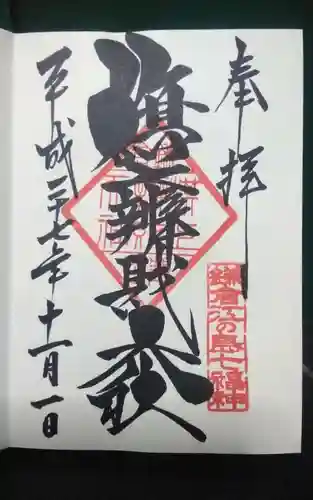 奉拝
旗上弁財天
鎌倉江の島七福神
平成二十七年十一月一日